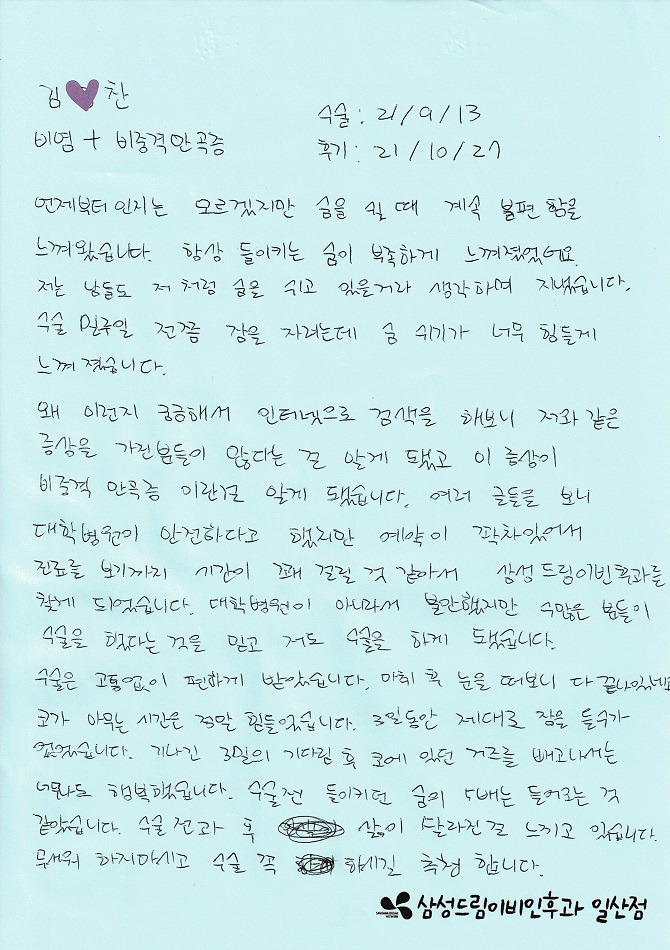 김 찬
수술 : 21/9/13
비염 + 비중격만곡증
후기 : 21/10/27
언제부터인지는 모르겠지만 숨을 쉴 때 계속 불편함을
느껴왔습니다. 항상 들이키는 숨이 부족하게 느껴졌었어요.
저는 남들도 저 처럼 숨을 쉬고 있을거라 생각하며 지냈습니다.
수술 일주일 전쯤 잠을 자려는데 숨 쉬기가 너무 힘들게
느껴졌습니다.
왜 이런지 궁금해서 인터넷으로 검색을 해보니 저와 같은
증상을 가진분들이 많다는 걸 알게 됐고 이 증상이
비중격 만곡증 이란걸 알게 됐습니다. 여러 글들을 보니
대학병원이 안전하다고 했지만 예약이 꽉차있어서
진료를 보기까지 시간이 꽤 걸릴 것 같아서 삼성드림이빈후과를
찾게 되었습니다. 대학병원이 아니라서 불안했지만 수많은 분들이
수술을 했다는 것을 믿고 저도 수술을 하게 됐습니다.
수술은 고통없이 편하게 받았습니다. 마취 후 눈을 떠보니 다 끝나있네요
코가 아무는 시간은 정말 힘들었습니다. 3일동안 제대로 잠을 들수가
없었습니다. 기나긴 3일의 기다림 후 코에 있던 거즈를 빼고나서는
너무나도 행복했습니다. 수술전 들이키던 숨의 5배는 들어오는 것
같았습니다. 수술 전과 후 삶이 달라진걸 느끼고 있습니다.
무서워 하지마시고 수술 꼭 하시길 추천 합니다.
삼성드림이비인후과 일산점